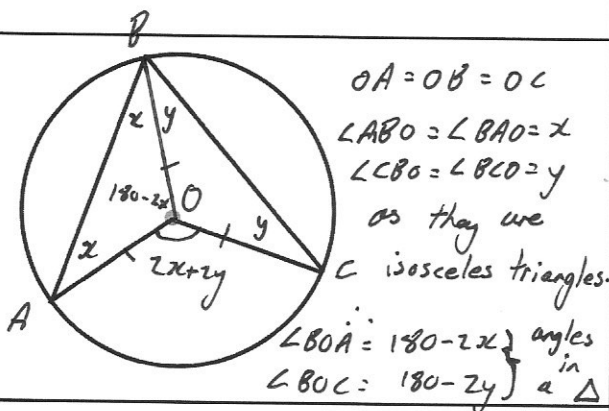 B
x y
180-2x O
x
y
2x+2y
A
C
OA = OB = OC
∠ABO = ∠BAO = x
∠CBO = ∠BCO = y
as they are
isosceles triangles.
∴
∠BOA = 180-2x } angles in
∠BOC = 180-2y } a △